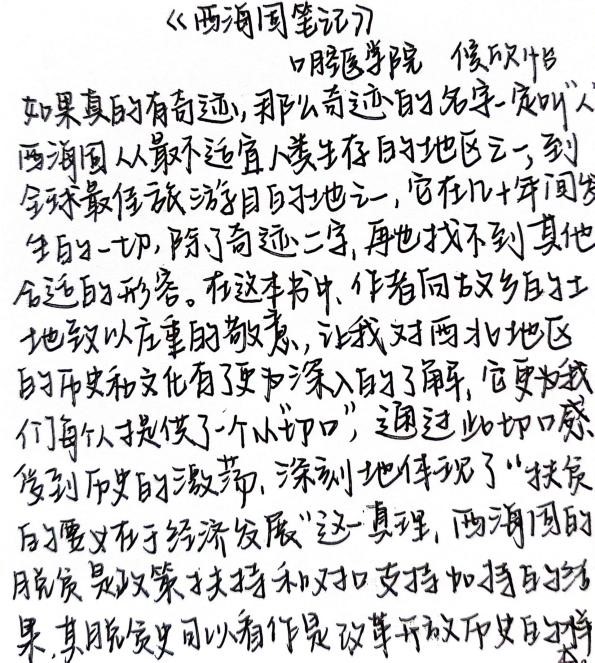 《西海固笔记》
口腔医学院 侯欣怡
如果真的有奇迹,那么奇迹的名字一定叫“人
西海固从最不适宜人类生存的地区之一,到
全球最佳旅游目的地之一,它在几十年间发
生的一切,除了奇迹二字,再也找不到其他
合适的形容。在这本书中,作者向故乡的土
地致以庄重的敬意,让我对西北地区
的历史和文化有了更为深入的了解,它更为我
们每个人才提供了一个小“切口”,通过此切口感
受到历史的激荡,深刻地体现了“扶贫
的要义在于经济发展”这一真理,西海固的
脱贫是政策扶持和对口支持加持的结
果,其脱贫史可以看作是改革开放历史的样
本。